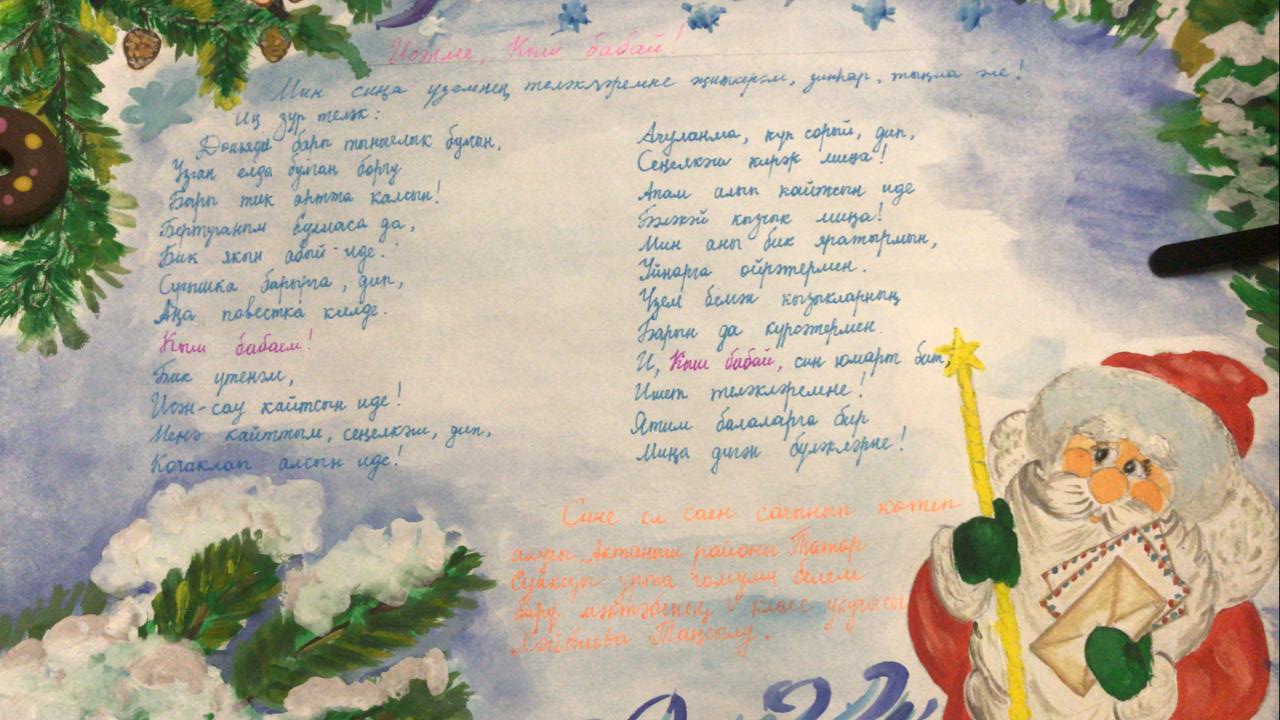 Исәнме, Кыш бабай!
Мин сиңа үземнең теләкләремне җиткерәм, зинһар, тыңла әле!
Иң зур теләк:
Дөньяда бары тынычлык булсын,
Узган елда булган борчу
Бары тик артта калсын!
Бертуганым булмаса да,
Бик якын абый иде.
Сугышка барырга, дип,
Аңа повестка килде.
Кыш бабаем!
Бик үтенәм,
Исән-сау кайтсын иде!
Менә кайттым, сеңелкәш, дип,
Кочаклап алсын иде!
Ачуланма, күп сорый, дип,
Сеңелкәш кирәк миңа!
Апам алып кайтсын иде
Бәләкәй кызчык миңа!
Мин аны бик яратырмын,
Уйнарга өйрәтермен.
Үзем белгән кызыкларның
Барын да күрсәтермен.
И, Кыш бабай, син юмарт бит,
Ишет теләкләремне!
Ятим балаларга бир
Миңа дигән бүләкләрне!
Сине ел саен сагынып көтеп
алучы Актаныш районы Татар
Суыксуы урта гомуми белем
бирү мәктәбенең класс укучысы
Таңсылу.